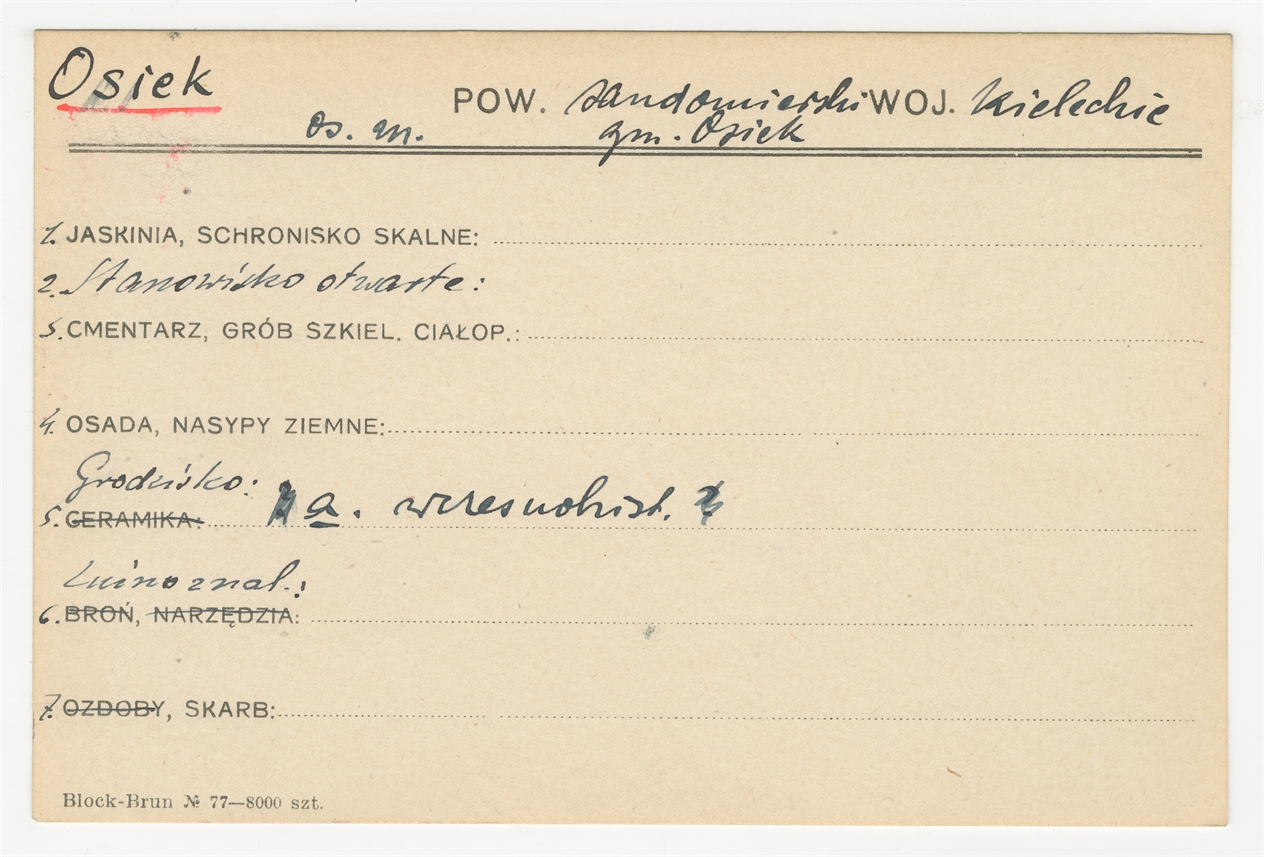 Osiek
POW. sandomierski WOJ. kieleckie
os. m. gm. Osiek
1. JASKINIA, SCHRONISKO SKALNE:
2. Stanowisko otwarte:
3. CMENTARZ, GRÓB SZKIEL. CIAŁOP.:
4. OSADA, NASYPY ZIEMNE:
Grodzisko:
5. CERAMIKA: a. wczesnohist.
Luźno znal.:
6. BROŃ, NARZĘDZIA:
7. OZDOBY, SKARB:
Block-Brun № 77—8000 szt.